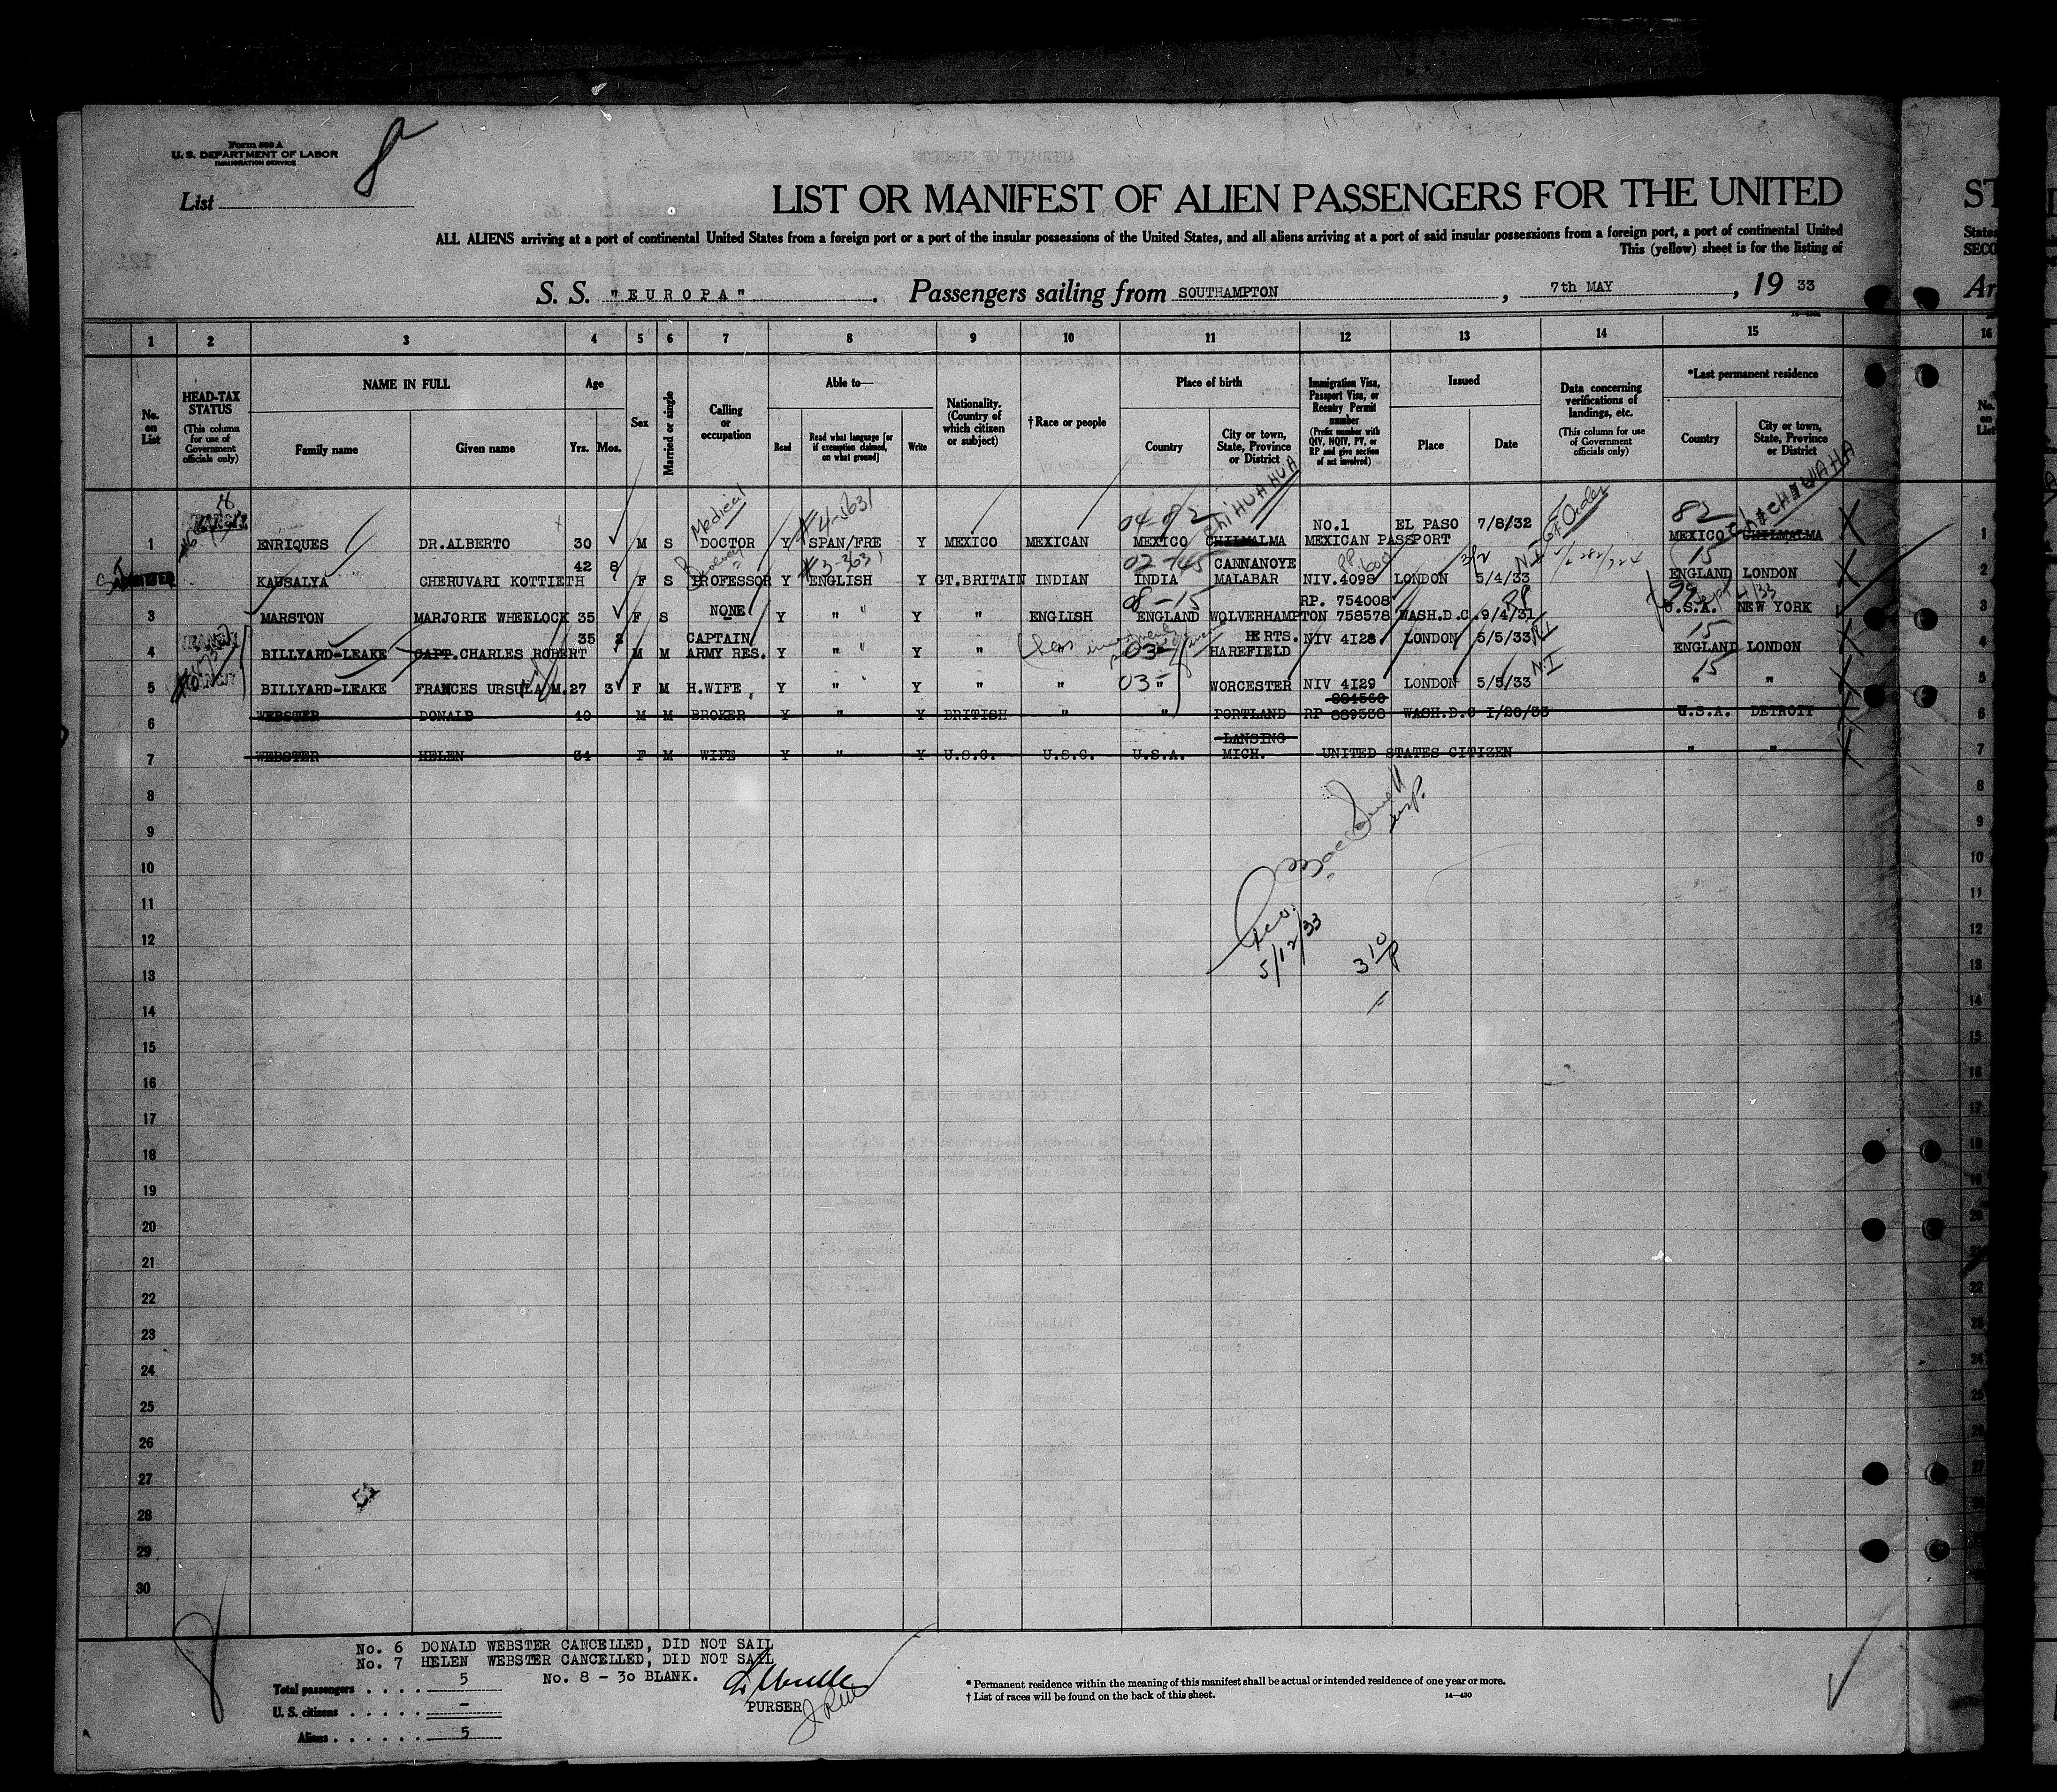 Form 500 A
U. S. DEPARTMENT OF LABOR
IMMIGRATION SERVICE
8
List
LIST OR MANIFEST OF ALIEN PASSENGERS FOR THE UNITED
ALL ALIENS arriving at a port of continental United States from a foreign port or a port of the insular possessions of the United States, and all aliens arriving at a port of said insular possessions from a foreign port, a port of continental United
This (yellow) sheet is for the listing of
S. S. "EUROPA" . Passengers sailing from SOUTHAMPTON , 7th MAY , 19 33
1 2 3 4 5 6 7 8 9 10 11 12 13 14 15 16
No. on List
HEAD-TAX STATUS (This column for use of Government officials only)
NAME IN FULL Family name Given name
Age Yrs. Mos.
Sex
Married or single
Calling or occupation
Able to— Read Read what language [or if exemption claimed, on what ground] Write
Nationality. (Country of which citizen or subject)
†Race or people
Place of birth Country City or town, State, Province or District
Immigration Visa, Passport Visa, or Reentry Permit number (Prefix number with QIV, NQIV, PV, or RP and give section of act involved)
Issued Place Date
Data concerning verifications of landings, etc. (This column for use of Government officials only)
*Last permanent residence Country City or town, State, Province or District
No. on List
Medical 04-82 CHIHUAHUA 82 CHIHUAHUA
1 ENRIQUES DR.ALBERTO 30 M S DOCTOR Y SPAN/FRE Y MEXICO MEXICAN MEXICO CHILMALMA NO.1 MEXICAN PASSPORT EL PASO 7/8/32 MEXICO CHILMALMA 1
2 KAUSALYA CHERUVARI KOTTIETH 42 8 F S PROFESSOR Y ENGLISH Y GT.BRITAIN INDIAN INDIA CANNANOYE MALABAR NIV.4098 LONDON 5/4/33 15 ENGLAND LONDON 2
3 MARSTON MARJORIE WHEELOCK 35 F S NONE Y " Y " ENGLISH 08-15 ENGLAND WOLVERHAMPTON RP. 754008 758578 WASH.D.C. 9/4/31 RP 99 U.S.A. NEW YORK 3
4 BILLYARD-LEAKE CAPT.CHARLES ROBERT 35 2 M M CAPTAIN ARMY RES. Y " Y " 03- HERTS. HAREFIELD NIV 4I28 LONDON 5/5/33 NI 15 ENGLAND LONDON 4
5 BILLYARD-LEAKE FRANCES URSULA M. 27 3 F M H.WIFE Y " Y " " 03- " WORCESTER NIV 4I29 LONDON 5/5/33 NI 15 " " 5
6 WEBSTER DONALD 40 M M BROKER Y " Y BRITISH " " PORTLAND 884560 RP 889538 WASH.D.C I/26/33 U.S.A. DETROIT 6
7 WEBSTER HELEN 34 F M WIFE Y " Y U.S.C. U.S.C. U.S.A. LANSING MICH. UNITED STATES CITIZEN " " 7
8 8
9 9
10 10
11 11
12 12
13 13
14 14
15 15
16 16
17 17
18 18
19 19
20 20
21 21
22 22
23 23
24 24
25 25
26 26
27 27
28 28
29 29
30
Geo.
Insp.
5/12/33
3 10 P
No. 6 DONALD WEBSTER CANCELLED, DID NOT SAIL
No. 7 HELEN WEBSTER CANCELLED, DID NOT SAIL
Total passengers . . . . 5 No. 8 - 30 BLANK.
PURSER
U. S. citizens . . . . . -
Aliens . . . . . . 5
* Permanent residence within the meaning of this manifest shall be actual or intended residence of one year or more.
† List of races will be found on the back of this sheet. 14—420